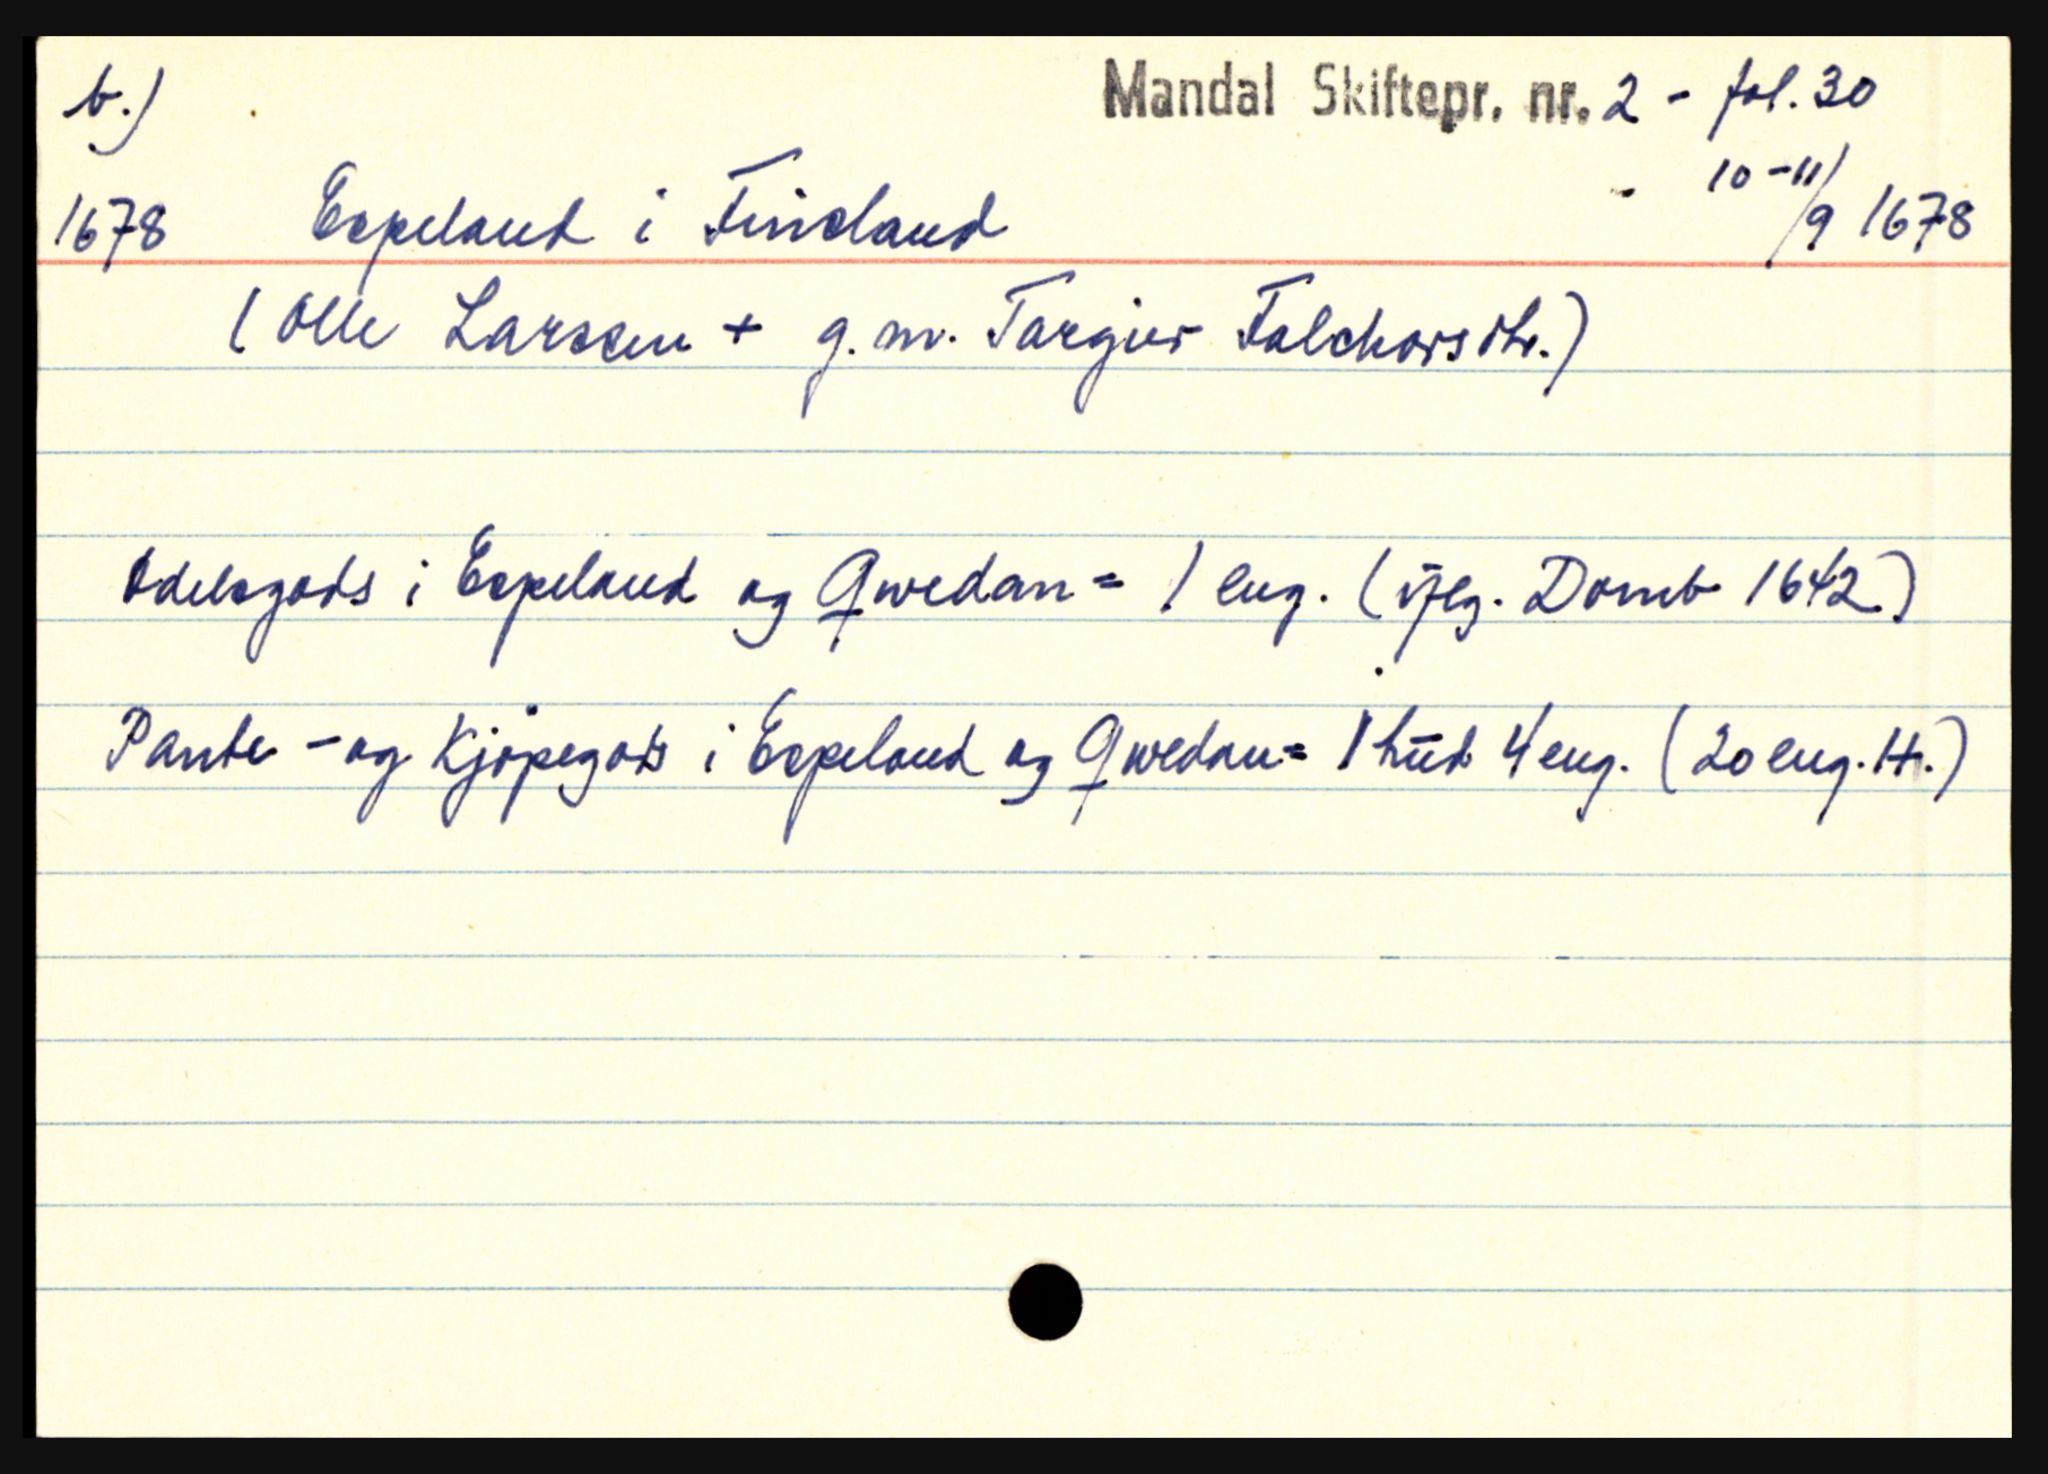 b.) Mandal Skiftepr. nr. 2 - fol. 30
10-11/9 1678
1678 Espeland i Finsland
(Olle Larssen + g.m. Targier Falchorsdtr.)
Odelsgods i Espeland og Qwedan = 1 eng. (iflg. Domb 1642)
Pante - og Kjöpegods i Espeland og Qwedan = 1 hud 4 eng. (20 eng. H.)